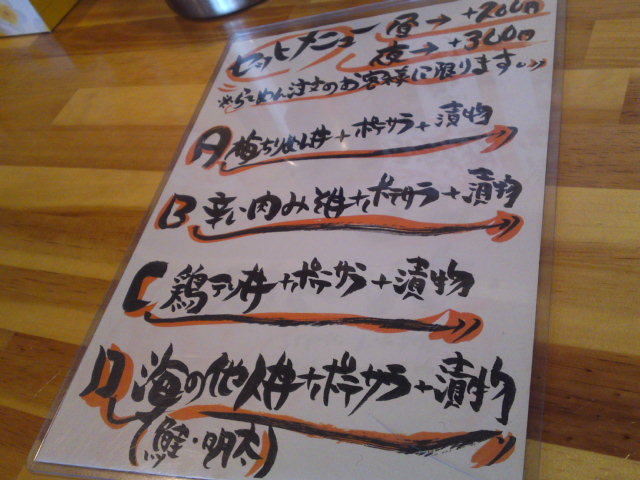 セットメニュー 昼→+200円
夜→+300円
※らーめん注文のお客様に限ります。
A 梅ちりめん丼+ポテサラ+漬物
B 辛い肉みそ丼+ポテサラ+漬物
C 鶏テリ丼+ポテサラ+漬物
D 海の他人丼+ポテサラ+漬物
(鮭・明太)